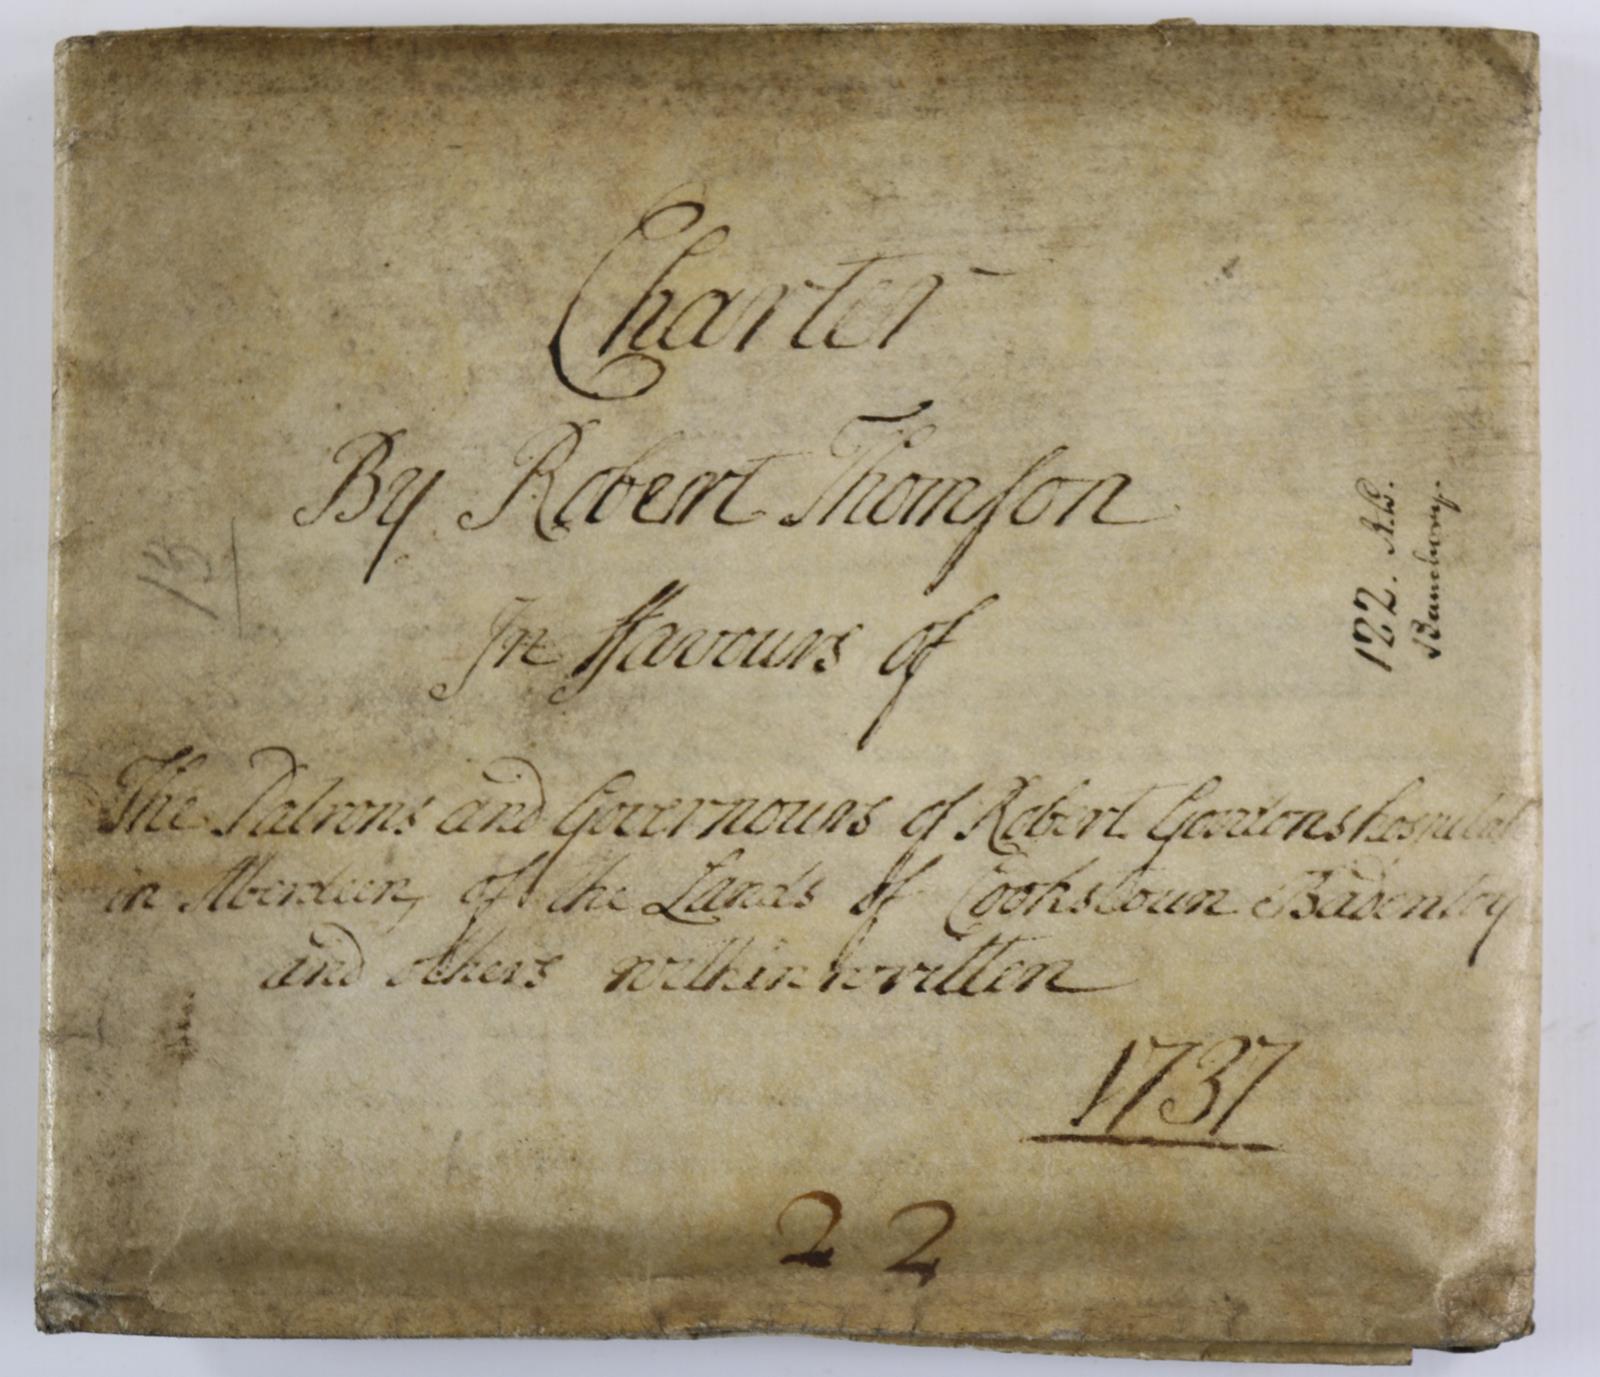 Charter
By Robert Thomson
In ffavours of
The Patrons and Governours of Robert Gordons hospital
in Aberdeen, of the Lands of Cookstoun Badentoy
and others within written
1737
22
13
122. R.G.